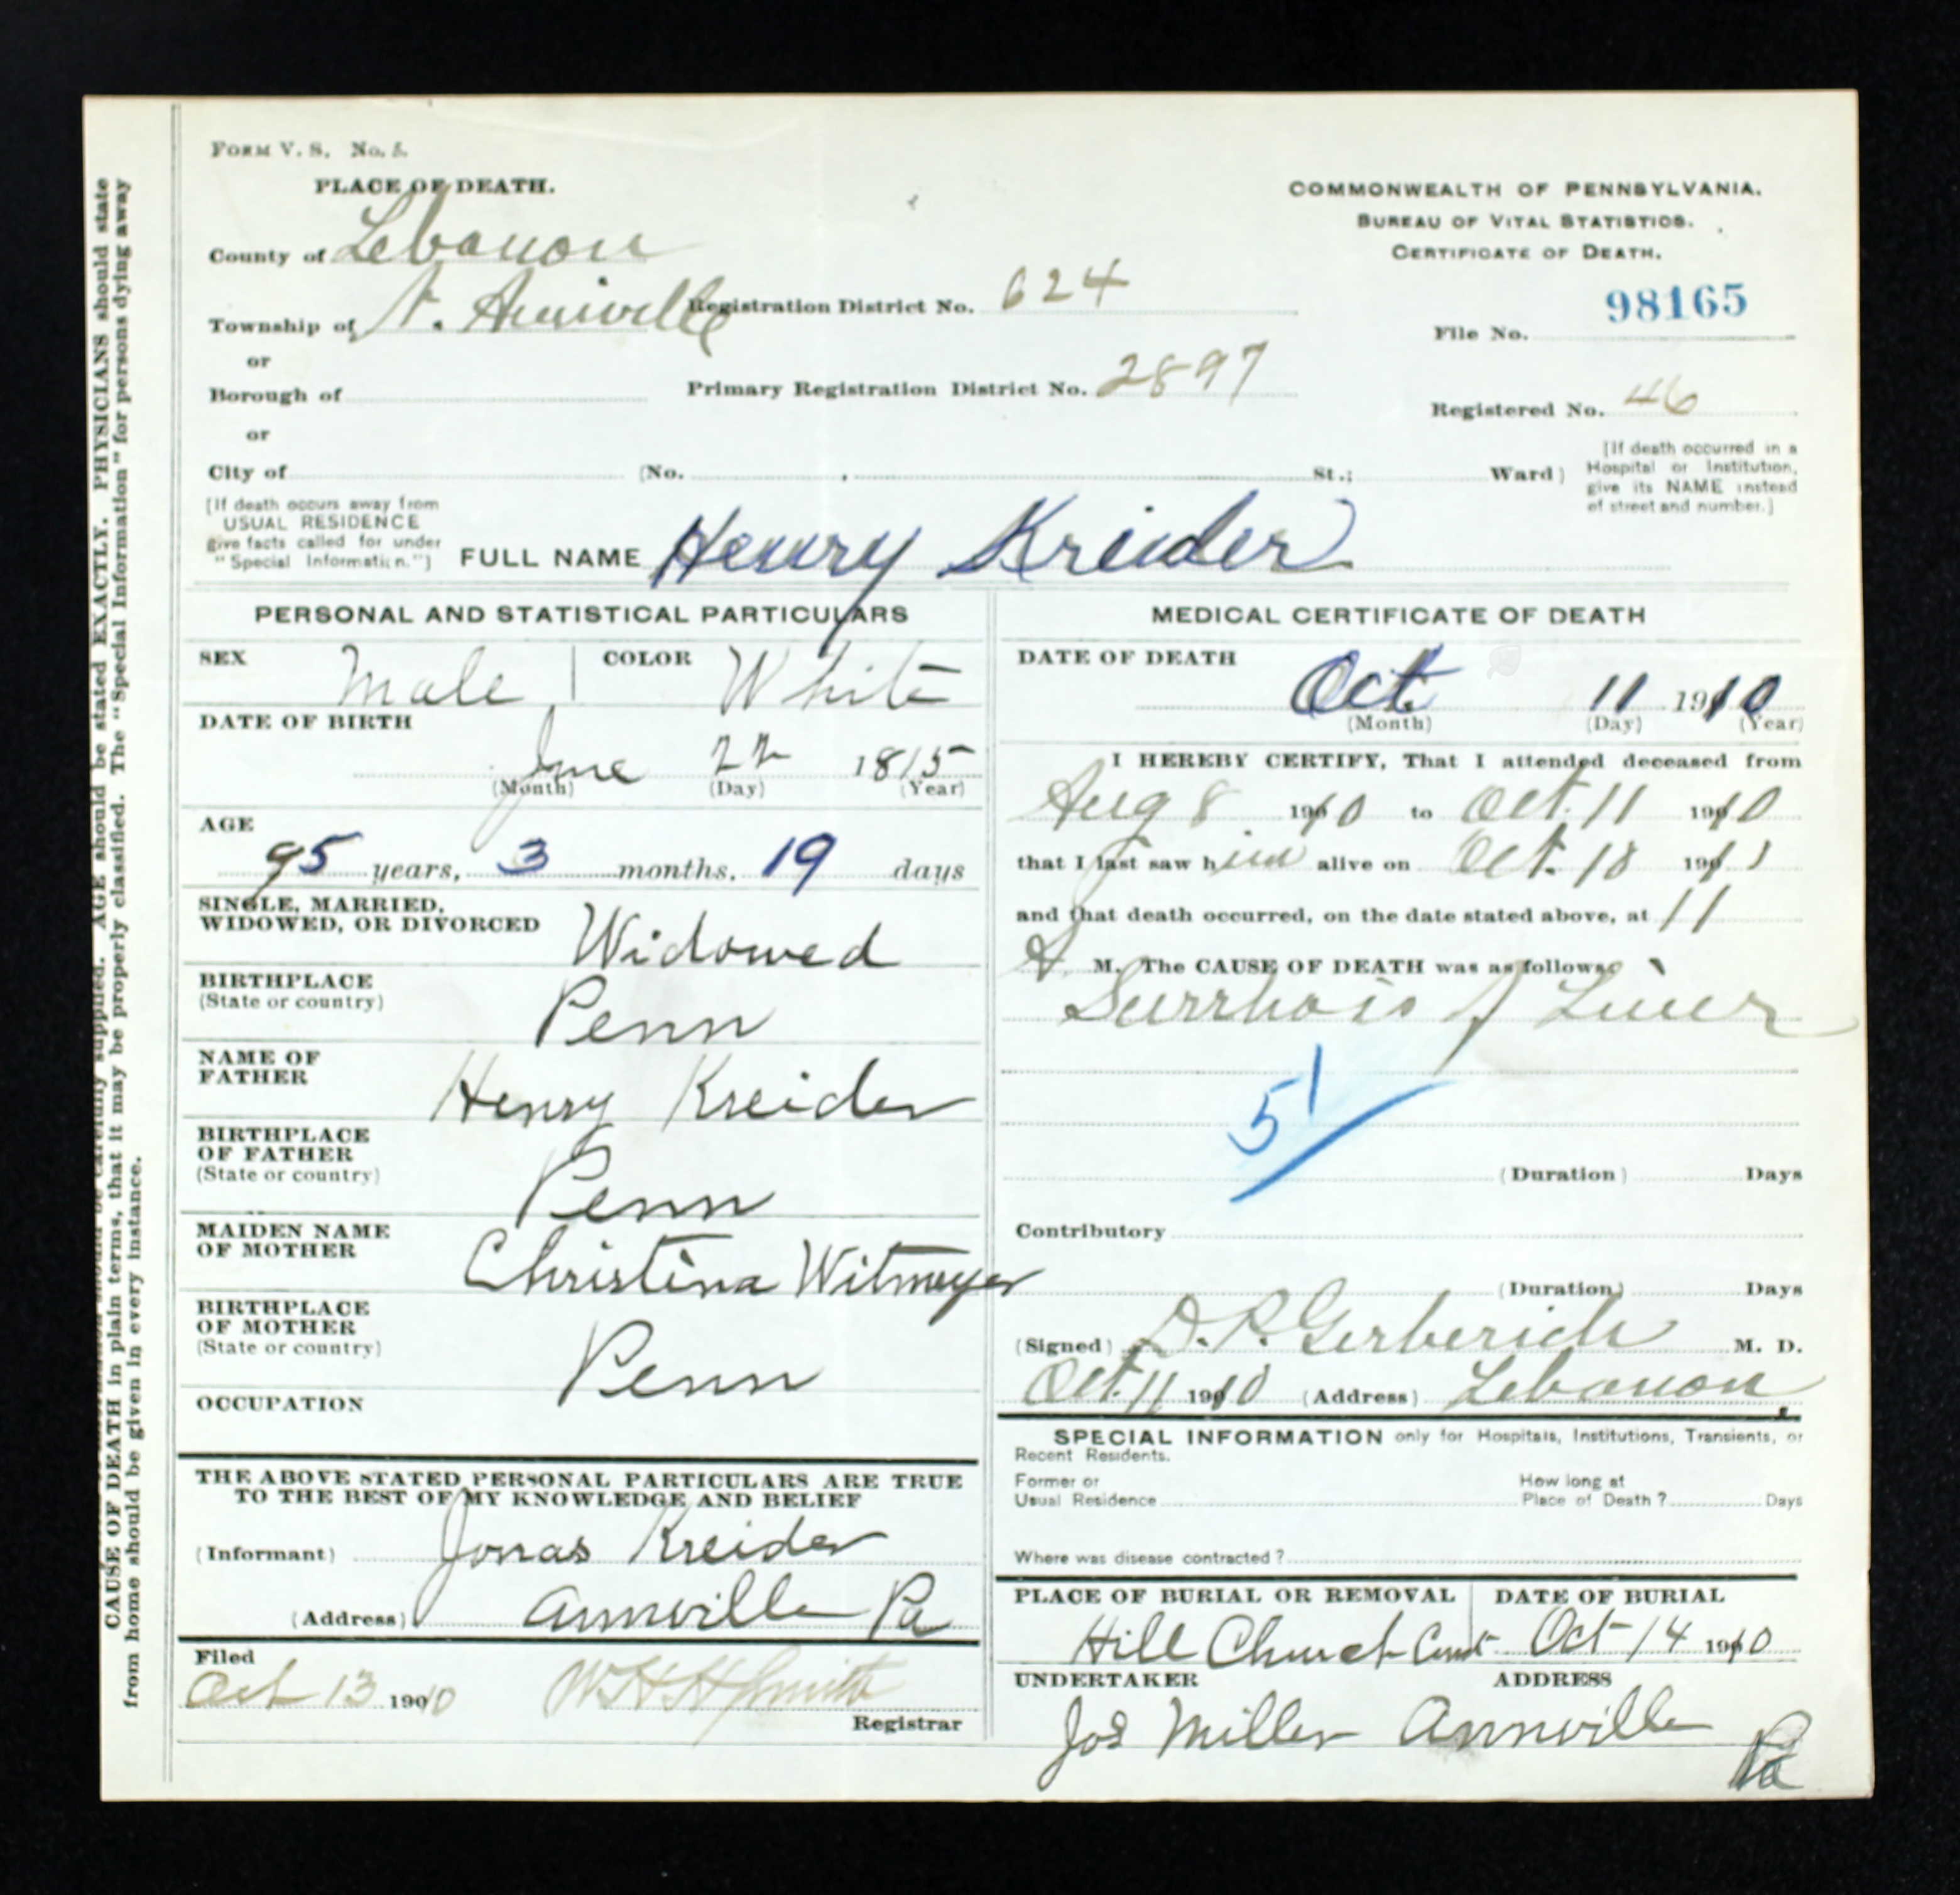 FORM V. S. No. 5.
PLACE OF DEATH.
County of Lebanon
Township of N. Annville
or
Borough of
or
City of (No. , St.; Ward)
Registration District No. 624
Primary Registration District No. 2897
COMMONWEALTH OF PENNSYLVANIA.
BUREAU OF VITAL STATISTICS.
CERTIFICATE OF DEATH.
File No. 98165
Registered No. 46
[If death occurred in a
Hospital or Institution,
give its NAME instead
of street and number.]
[If death occurs away from
USUAL RESIDENCE
give facts called for under
"Special Information."]
FULL NAME Henry Kreider
PERSONAL AND STATISTICAL PARTICULARS
SEX Male COLOR White
DATE OF BIRTH
June 22 1815
(Month) (Day) (Year)
AGE
95 years, 3 months, 19 days
SINGLE, MARRIED,
WIDOWED, OR DIVORCED Widowed
BIRTHPLACE
(State or country) Penn
NAME OF
FATHER Henry Kreider
BIRTHPLACE
OF FATHER
(State or country) Penn
MAIDEN NAME
OF MOTHER Christina Witmeyer
BIRTHPLACE
OF MOTHER
(State or country) Penn
OCCUPATION
THE ABOVE STATED PERSONAL PARTICULARS ARE TRUE
TO THE BEST OF MY KNOWLEDGE AND BELIEF
(Informant) Jonas Kreider
(Address) Annville Pa
Filed
Oct 13 1910 W H H Smith
Registrar
MEDICAL CERTIFICATE OF DEATH
DATE OF DEATH
Oct. 11 1910
(Month) (Day) (Year)
I HEREBY CERTIFY, That I attended deceased from
Aug 8 1910 to Oct. 11 1910
that I last saw him alive on Oct. 10 191
and that death occurred, on the date stated above, at 11
A. M. The CAUSE OF DEATH was as follows:
of Liver
51
(Duration) Days
Contributory
(Duration) Days
(Signed) D. P. Gerberich M. D.
Oct. 11 1910 (Address) Lebanon
SPECIAL INFORMATION only for Hospitals, Institutions, Transients, or
Recent Residents.
Former or
Usual Residence
How long at
Place of Death? Days
Where was disease contracted?
PLACE OF BURIAL OR REMOVAL DATE OF BURIAL
Hill Church Cemt Oct 14 1910
UNDERTAKER ADDRESS
Jos Miller Annville
Pa
AGE should be stated EXACTLY. PHYSICIANS should state
CAUSE OF DEATH in plain terms, that it may be properly classified. The "Special Information" for persons dying away
from home should be given in every instance.